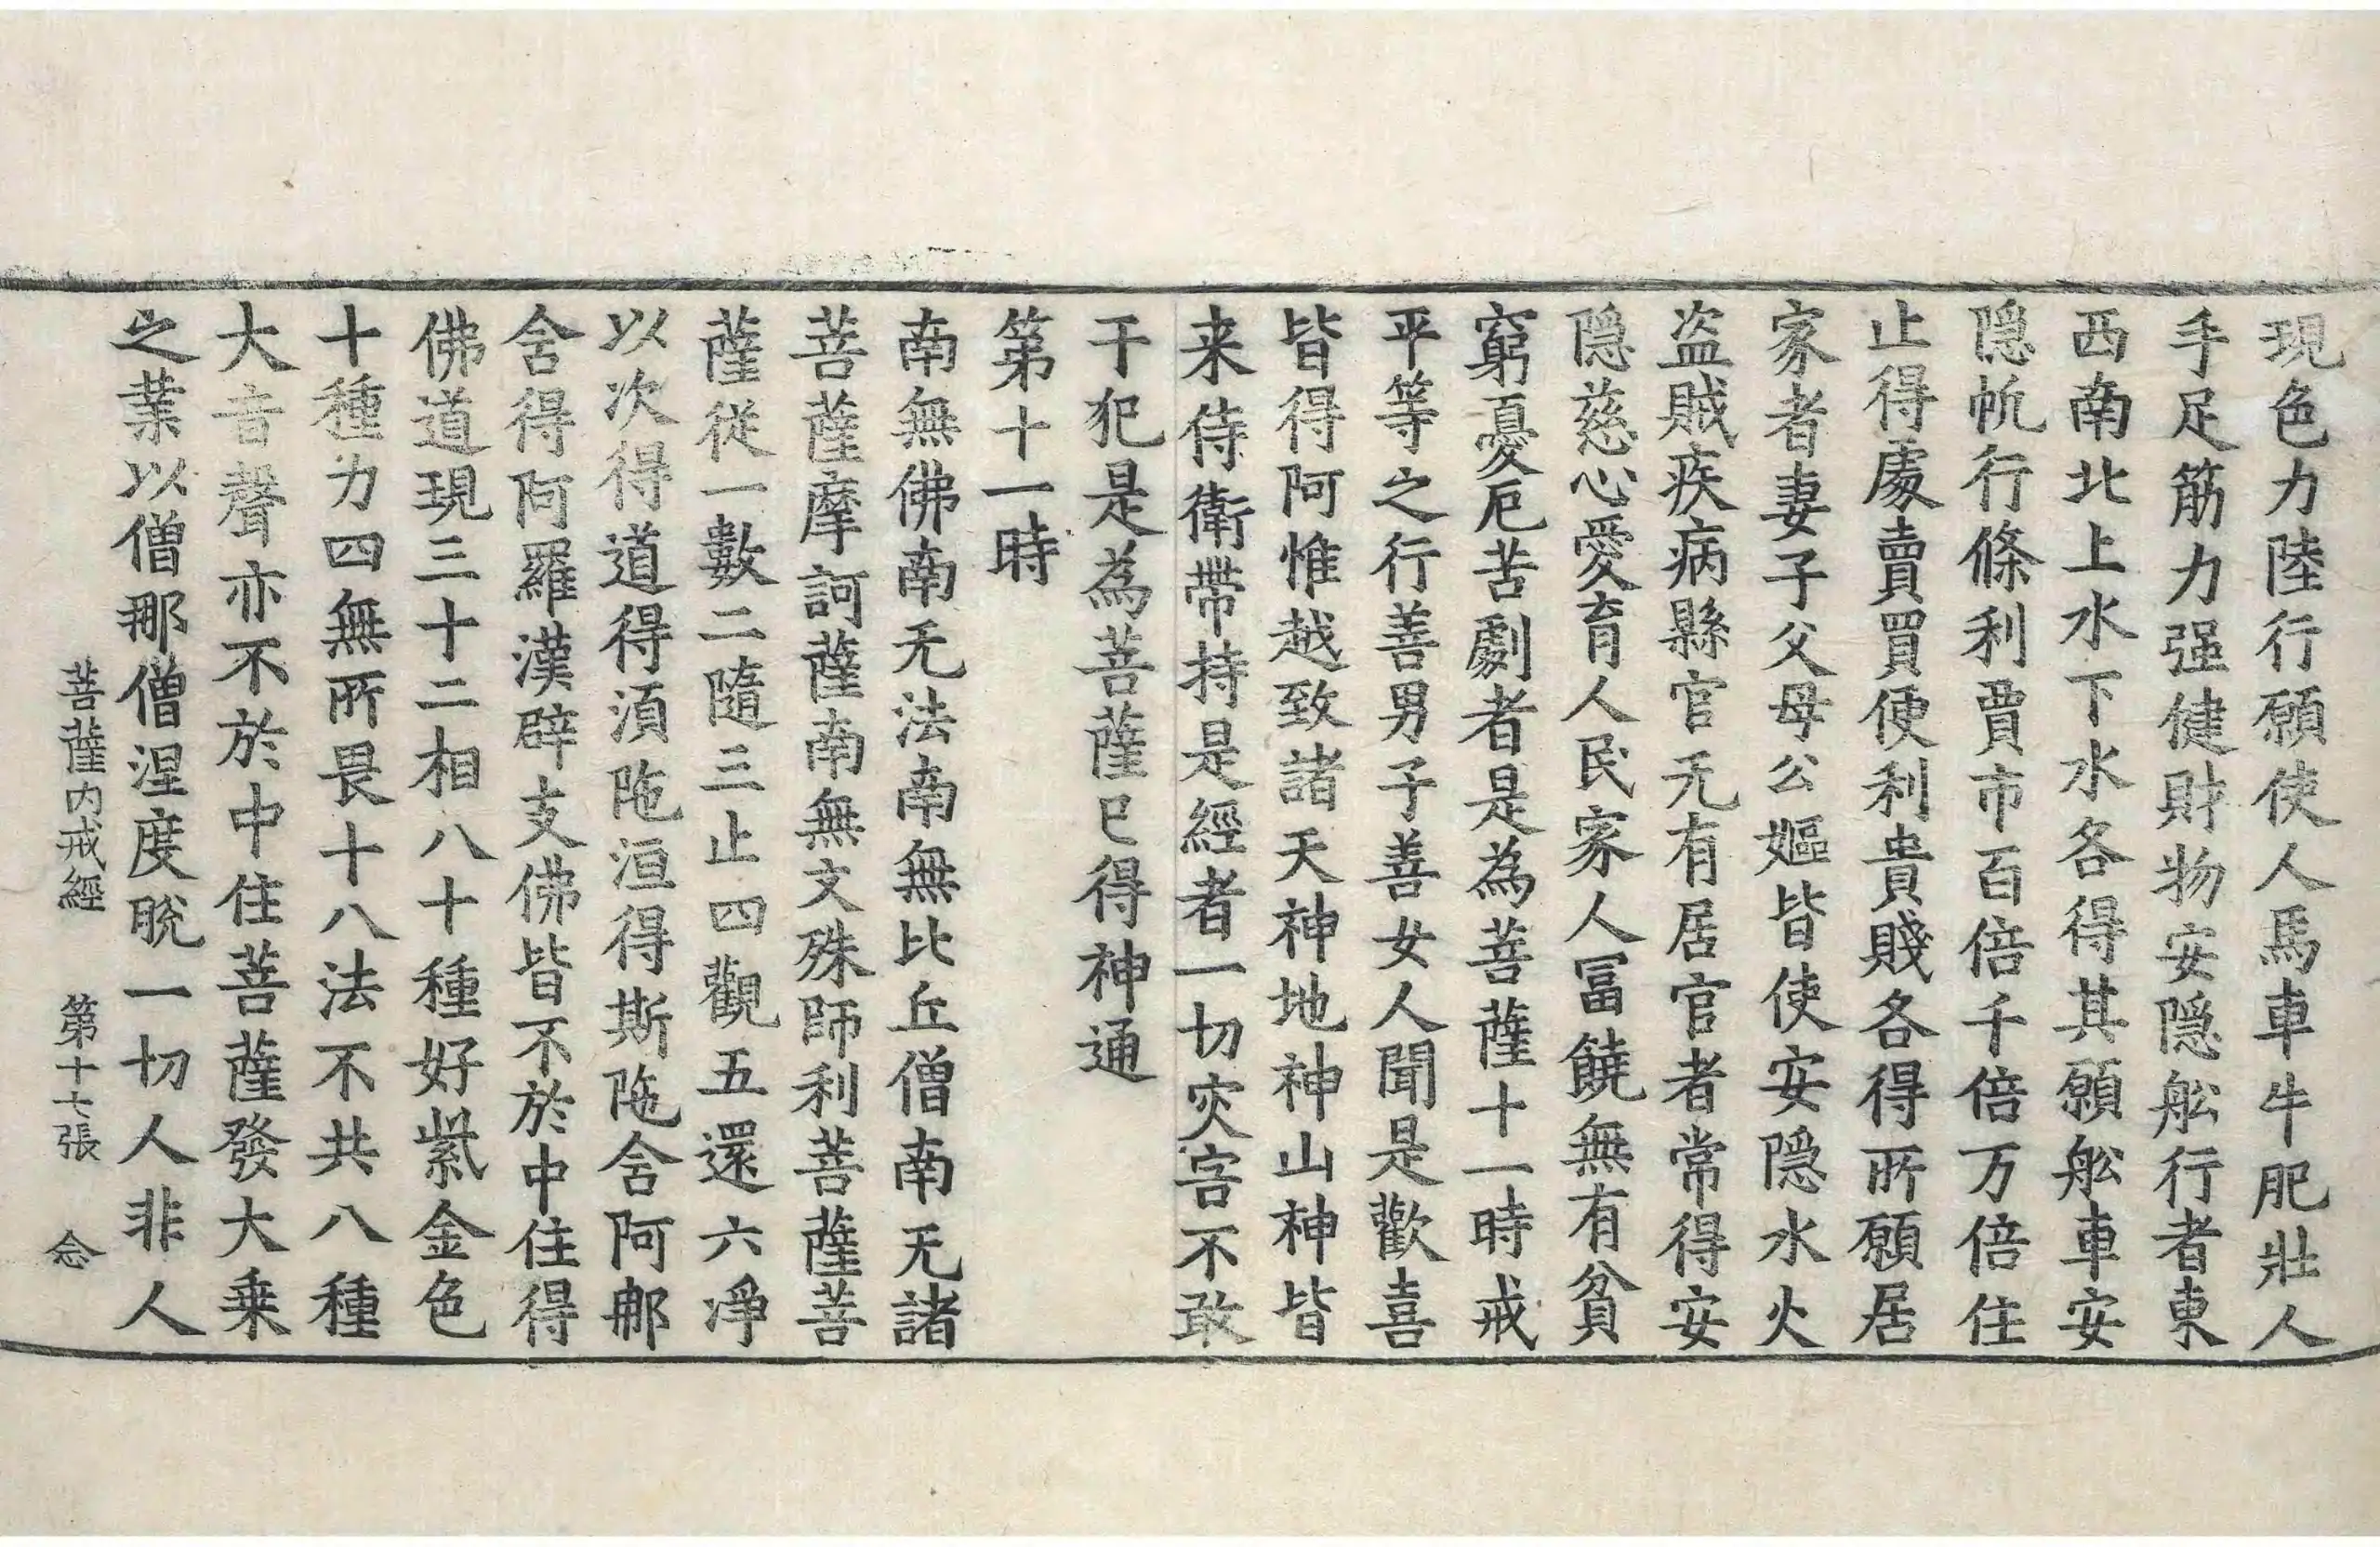 現色力陸行願使人馬車牛肥壯人
手足筋力强健財物安隠舩行者東
西南北上水下水各得其願舩車安
隠帆行條利賈市百倍千倍万倍住
止得處賣買便利貴賤各得所願居
家者妻子父母公嫗皆使安隠水火
盗賊疾病縣官无有居官者常得安
隠慈心愛育人民家人冨饒無有貧
窮憂厄苦劇者是為菩薩十一時戒
平等之行善男子善女人聞是歡喜
皆得阿惟越致諸天神地神山神皆
来侍衛帶持是經者一切灾害不敢
干犯是為菩薩已得神通
第十一時
南無佛南无法南無比丘僧南无諸
菩薩摩訶薩南無文殊師利菩薩菩
薩從一數二隨三止四觀五還六淨
以次得道得湏陁洹得斯陁含阿那
含得阿羅漢辟支佛皆不於中住得
佛道現三十二相八十種好紫金色
十種力四無所畏十八法不共八種
大音聲亦不於中住菩薩發大乗
之業以僧那僧涅度脫一切人非人
菩薩内戒經 第十七張 念